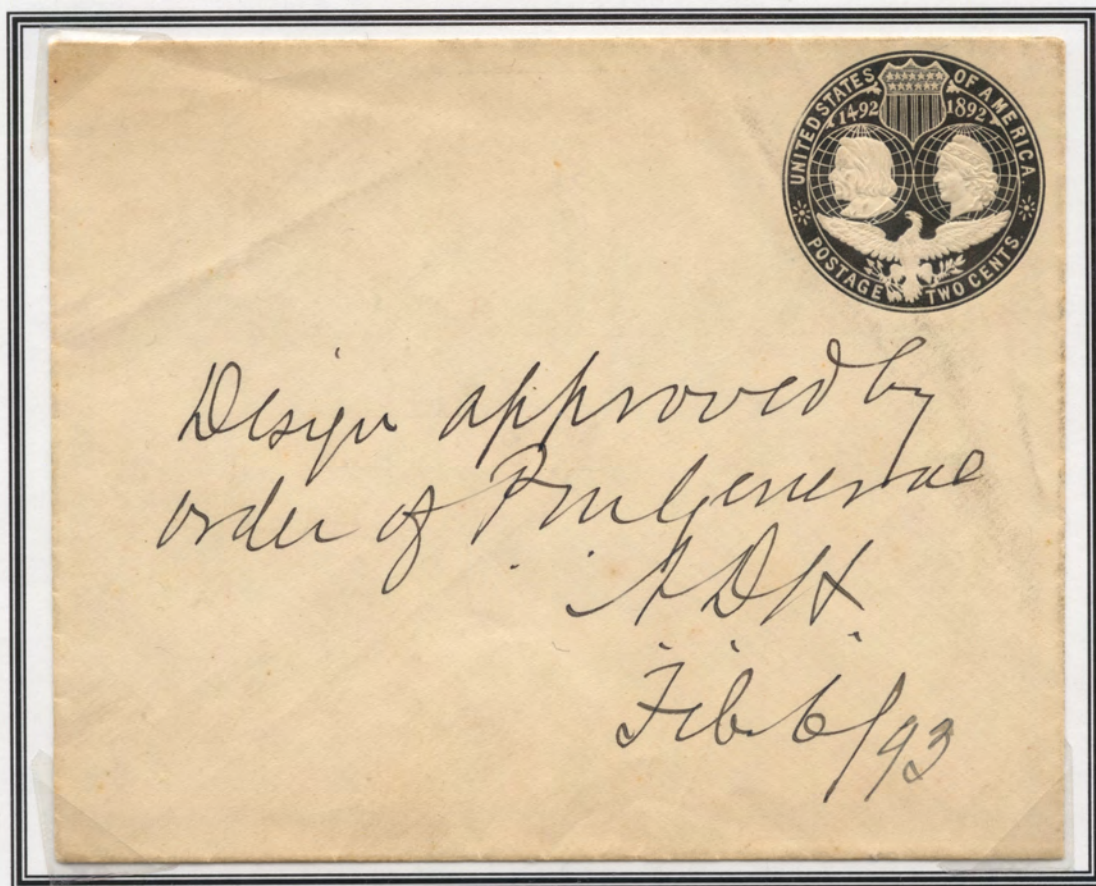 UNITED STATES OF AMERICA
1492 1892
POSTAGE TWO CENTS
Design approved by
order of Pm General
A D H
Feb. 6/93